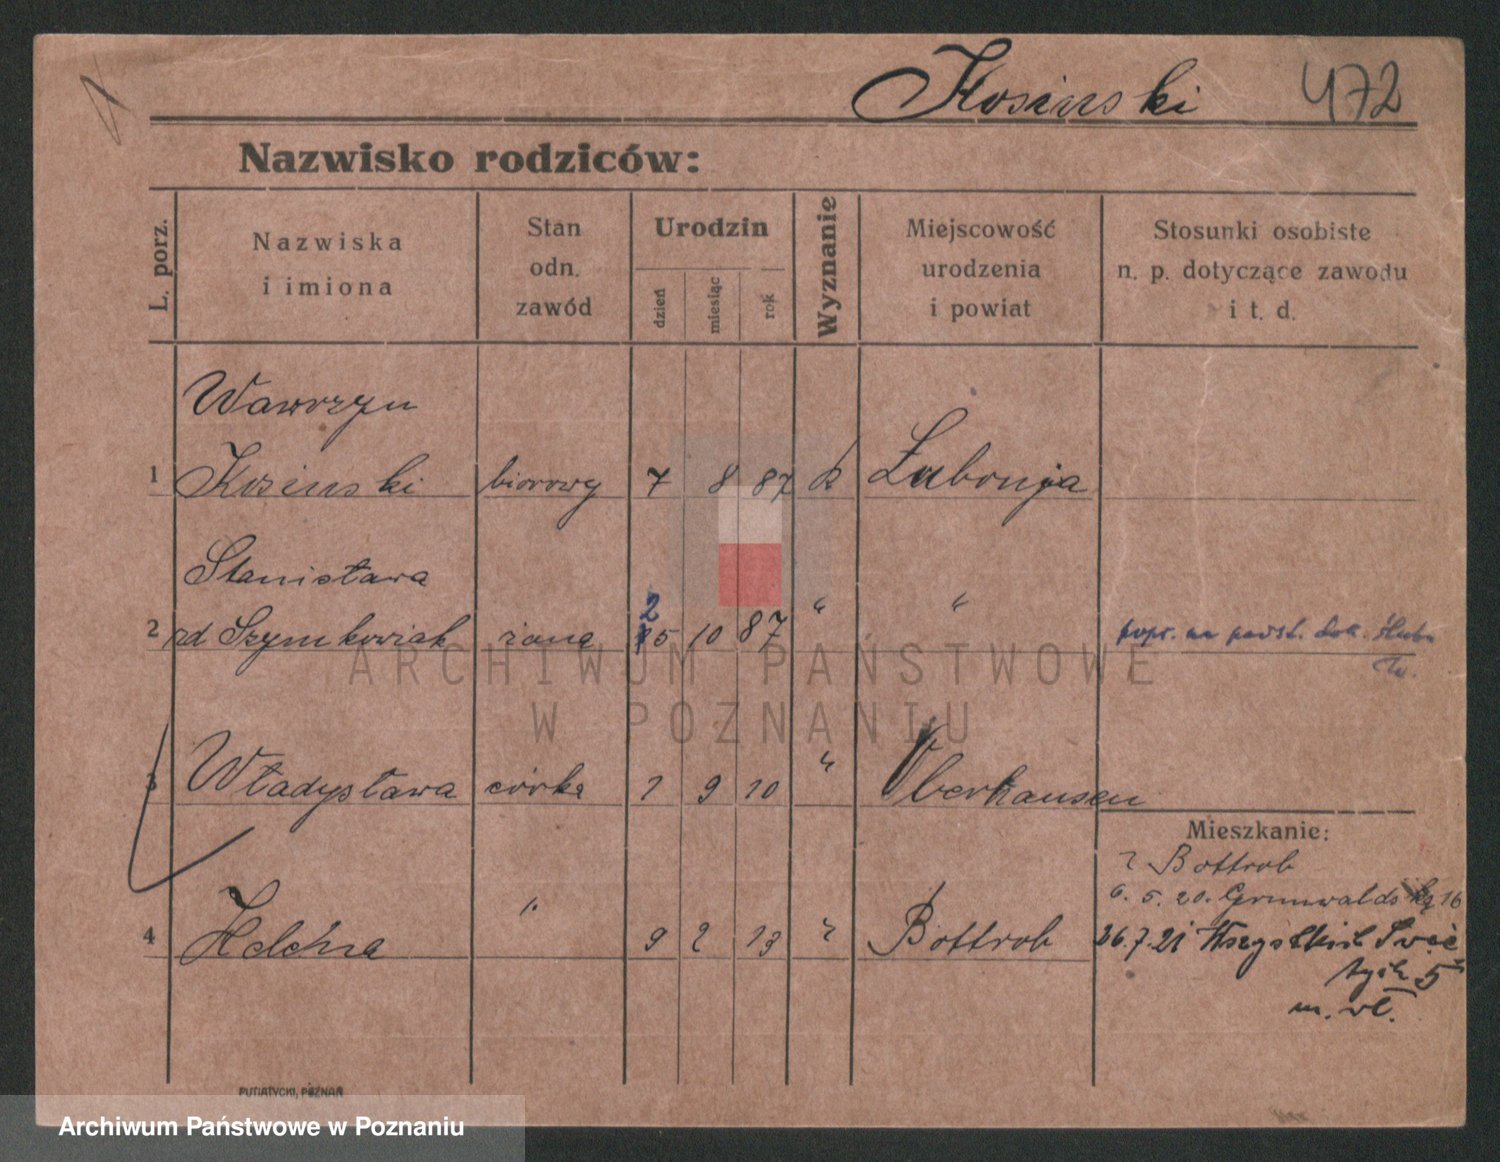 Kosinski 472
Nazwisko rodziców:
L. porz.
Nazwiska
i imiona
Stan
odn.
zawód
Urodzin
dzień
miesiąc
rok
Wyznanie
Miejscowość
urodzenia
i powiat
Stosunki osobiste
n. p. dotyczące zawodu
i t. d.
Wawrzyn
1 Kosinski biurowy 7 8 87 k Lubonja
Stanisława
2
2 zd Szymkowiak żona 5 10 87 " "
popr. na podst. dok. ślubu
3 Władysława córka 1 9 10 " Oberhausen
Mieszkanie:
z Bottrob
6. 5. 20. Grunwaldska 16
4 Helena " 9 2 13 " Bottrob
26.7.21 Wszystkich Świę
tych 5
m. wł.
PUTIATYCKI, POZNAŃ
ARCHIWUM PAŃSTWOWE
W POZNANIU
Archiwum Państwowe w Poznaniu